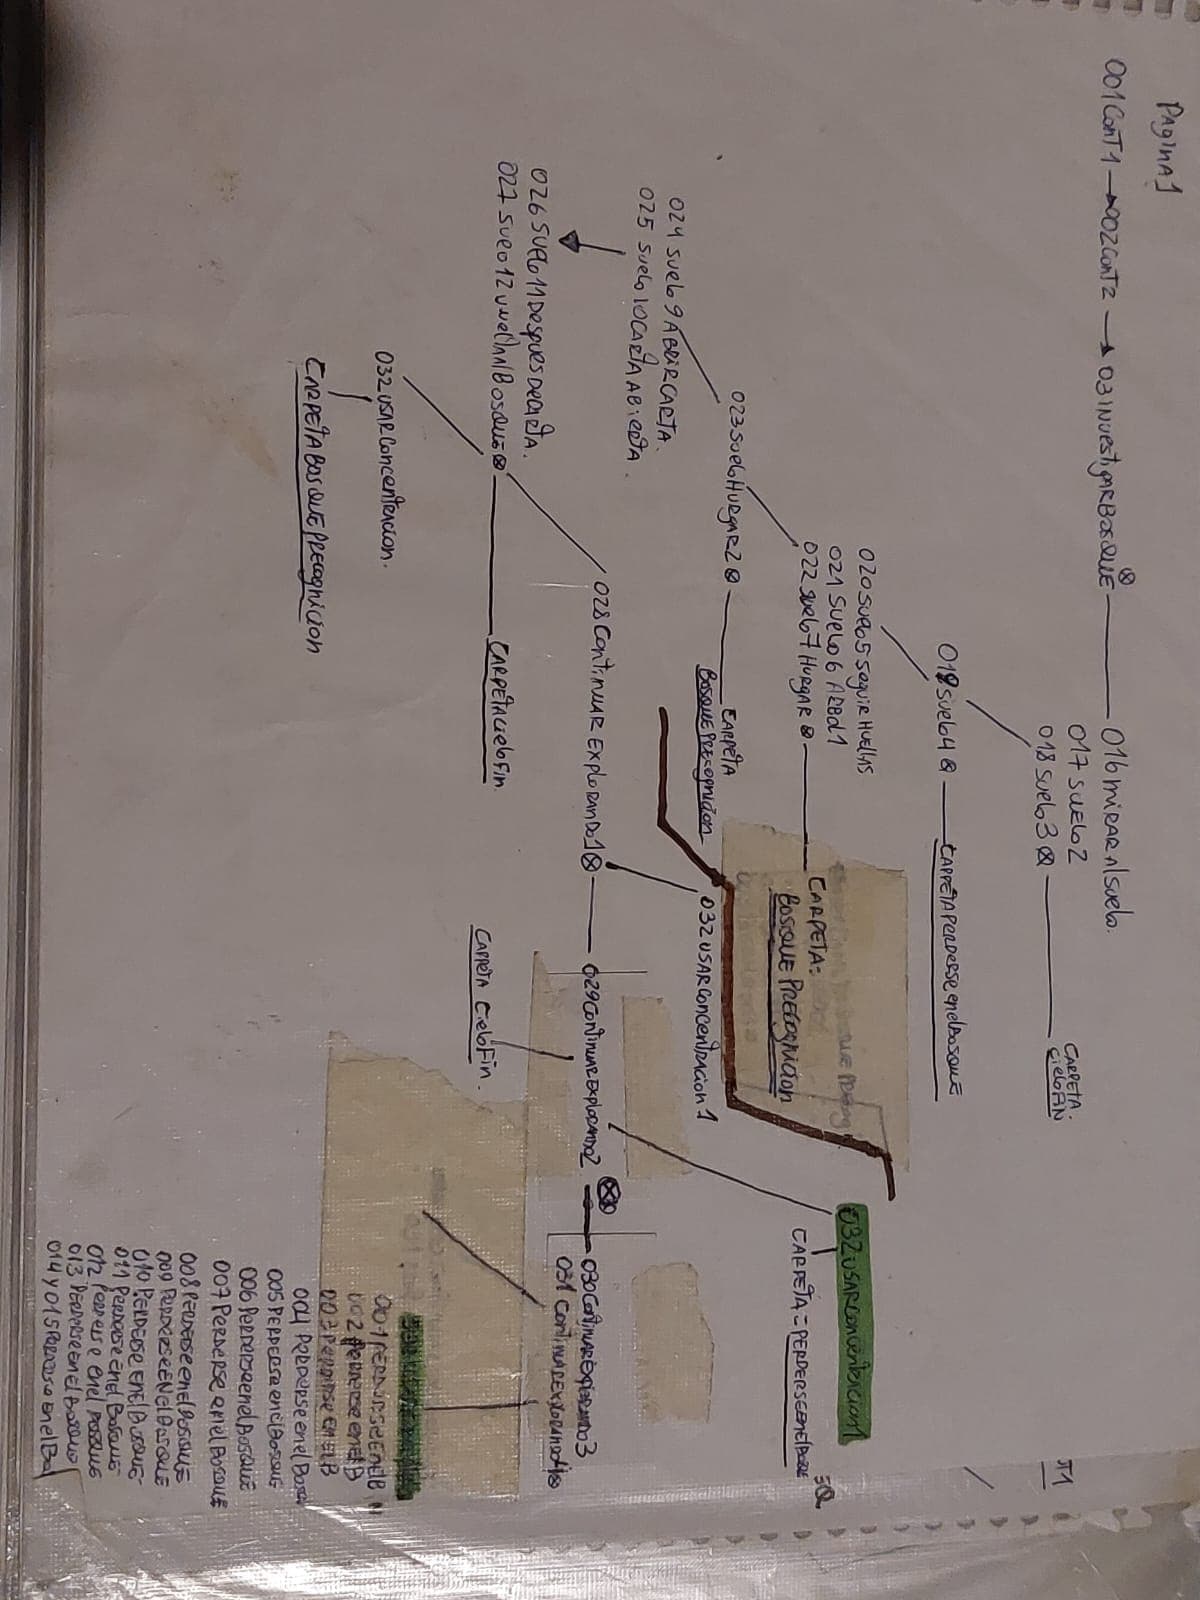 PAGINA 1
001 CONT1 → 002 CONT2 → 03 INVESTIGAR BOSQUE
016 MIRAR Al SUElo.
017 SUElo 2
018 SUElo 3
CARPETA.
CieloFIN
019 SUElo 4
CARPETA PERDERSE en el BOSQUE
020 SUElo 5 SEguiR HUEllAS
021 SUElo 6 ARBOl 1
022 SUElo 7 HURgAR
CARPETA:
BOSQUE PRECOgniCion
032 USAR ConcentRAcion 1
CARPETA = PERDERSE en el BOSQUE
023 SUElo HURgAR 2
CARPETA
BOSQUE PRECOgnicion
032 USAR ConcentRAcion 1
024 SUElo 9 ABRIR CARTA.
025 SUElo 10 CARTA ABiERTA.
028 ContiNUAR EXPloRANDo 1
029 ContiNUAR EXPloRANDo 2
030 ContiNUAR EXPloRANDo 3
031 ContiNUAR EXPloRANDo 4
026 SUElo 11 DESPUES DE CARTA.
027 SUElo 12 VUElta Al BOSQUE
CARPETA CieloFin.
CARPETA CieloFin.
032 USAR ConcentRAcion.
CARPETA BOSQUE PRECOgnicion
001 PERDERSE En El B
002 PERDERSE en el B
003 PERDERSE EN El B
004 PERDERSE en el Bosq
005 PERDERSE en el BOSQUE
006 PERDERSE en el BOSQUE
007 PERDERSE en el BOSQUE
008 PERDERSE en el BOSQUE
009 PERDERSE EN El BOSQUE
010 PERDERSE EN El BOSQUE
011 PERDERSE En El BOSQUE
012 PERDERSE en el BOSQUE
013 PERDERSE en el BOSQUE
014 y 015 PERDERSE en el Bos